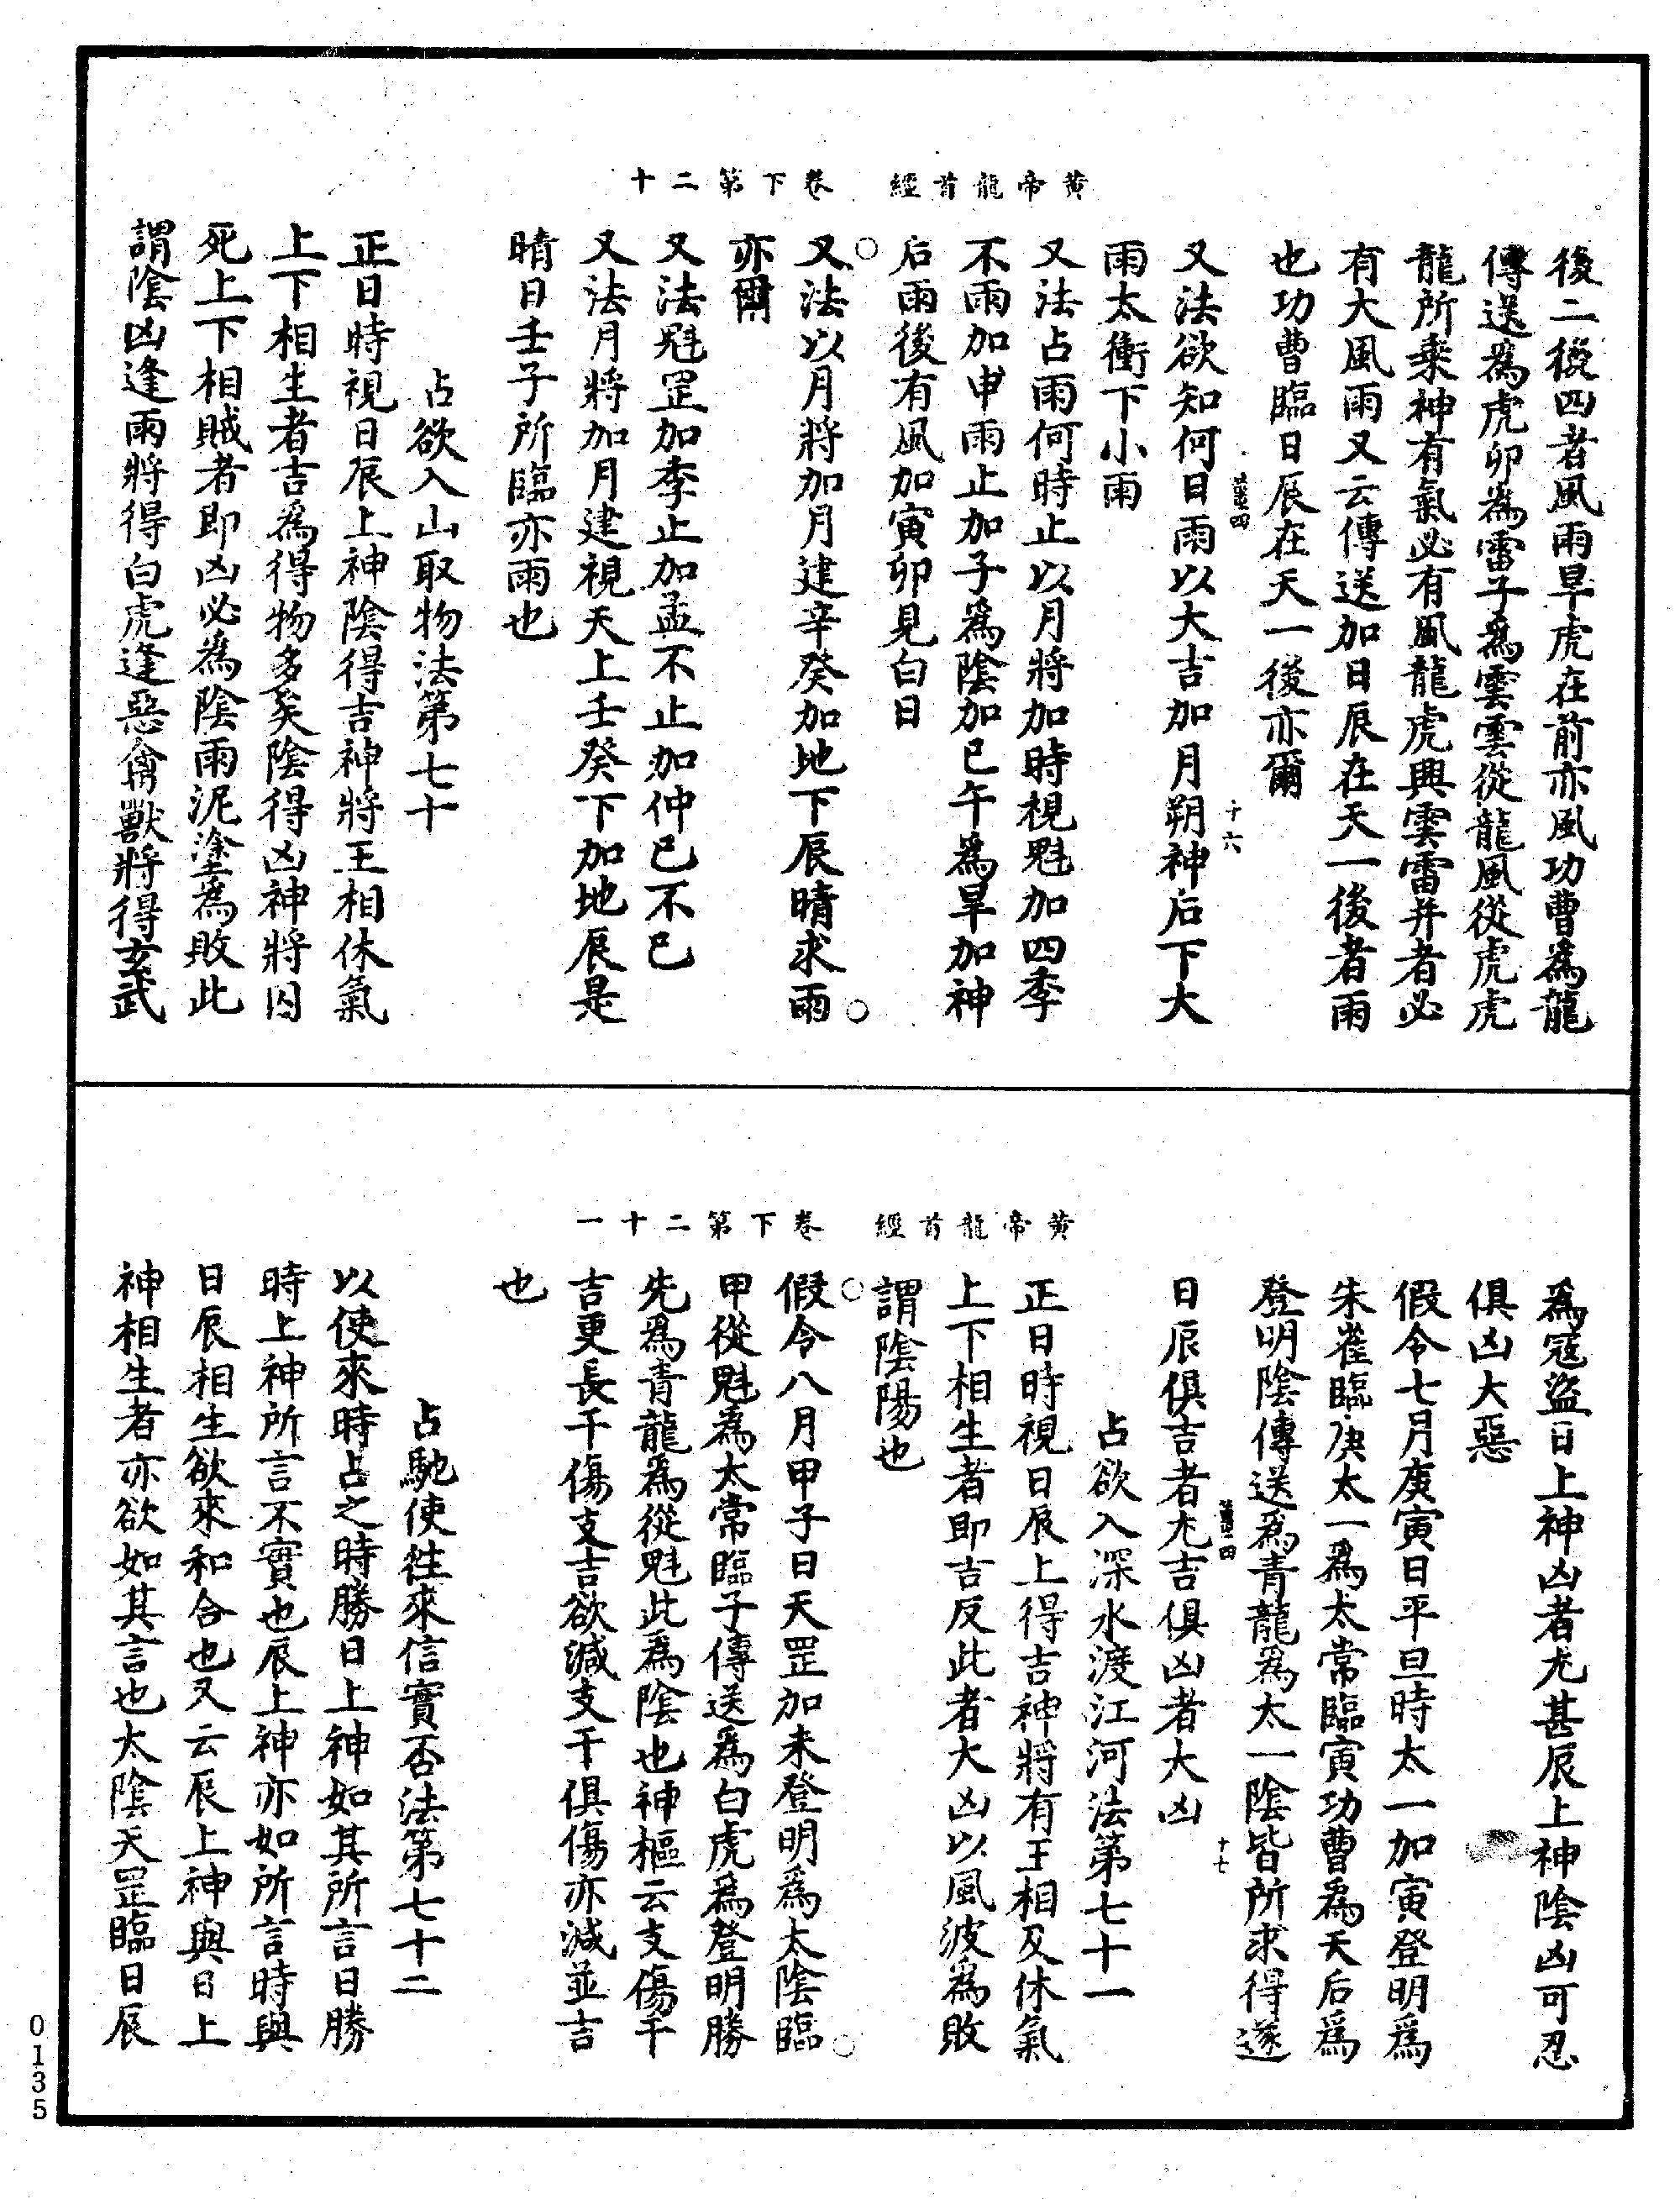 黄帝龍首經　卷下第二十
後二後四者風雨早虎在前亦風功曹爲龍
傳送爲虎卯爲雷子爲雲雲從龍風從虎虎
龍所乘神有氣必有風龍虎興雲雷并者必
有大風雨又云傳送加日辰在天一後者雨
也功曹臨日辰在天一後亦爾
十六
又法欲知何日雨以大吉加月朔神后下大
雨太衝下小雨
又法占雨何時止以月將加時視魁加四季
不雨加申雨止加子爲陰加巳午爲旱加神
后雨後有風加寅卯見白日
又法以月將加月建辛癸加地下辰晴求雨
亦爾
又法魁罡加季止加孟不止加仲已不已
又法月將加月建視天上壬癸下加地辰是
晴日壬子所臨亦雨也
占欲入山取物法第七十
正日時視日辰上神陰得吉神將王相休氣
上下相生者吉爲得物多矣陰得凶神將囚
死上下相賊者即凶必爲陰雨泥塗爲敗此
謂陰凶逢雨將得白虎逢惡禽獸將得玄武
黄帝龍首經　卷下第二十一
爲寇盜日上神凶者尤甚辰上神陰凶可忍
俱凶大惡
假令七月庚寅日平旦時太一加寅登明爲
朱雀臨庚太一爲太常臨寅功曹爲天后爲
登明陰傳送爲青龍爲太一陰皆所求得遂
十七
日辰俱吉者尤吉俱凶者大凶
占欲入深水渡江河法第七十一
正日時視日辰上得吉神將有王相及休氣
上下相生者即吉反此者大凶以風波爲敗
謂陰陽也
假令八月甲子日天罡加未登明爲太陰臨
甲從魁爲太常臨子傳送爲白虎爲登明勝
先爲青龍爲從魁此爲陰也神樞云支傷干
吉更長干傷支吉欲減支干俱傷亦減並吉
也
占馳使往來信實否法第七十二
以使來時占之時勝日上神如其所言日勝
時上神所言不實也辰上神亦如所言時與
日辰相生欲來和合也又云辰上神與日上
神相生者亦欲如其言也太陰天罡臨日辰
0135